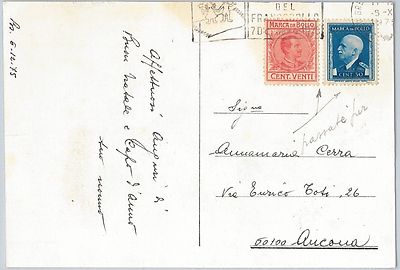 Bo. 6-12-75
Affettuosi Auguri di
Buon Natale e Capo d'anno
tuo nonno
DEL
FRANCOBOLLO
MARCA DA BOLLO
CENT. VENTI
MARCA DA BOLLO
CENT 50
passata per
Sig.na
Annamaria Cerra
Via Enrico Toti, 26
60100 Ancona